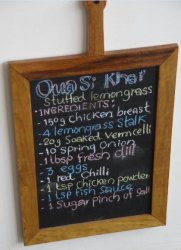 Oua Si Khai
Stuffed lemongrass
INGREDIENTS:
- 150g chicken breast
- 4 lemongrass stalk
- 20g Soaked Vermicelli
- 10 Spring Onion
- 1 tbsp fresh dill
- 3 eggs
- 1 red Chilli
- 1 tsp chicken powder
- 1 tsp fish sauce
- 1 Sugar Pinch of Salt